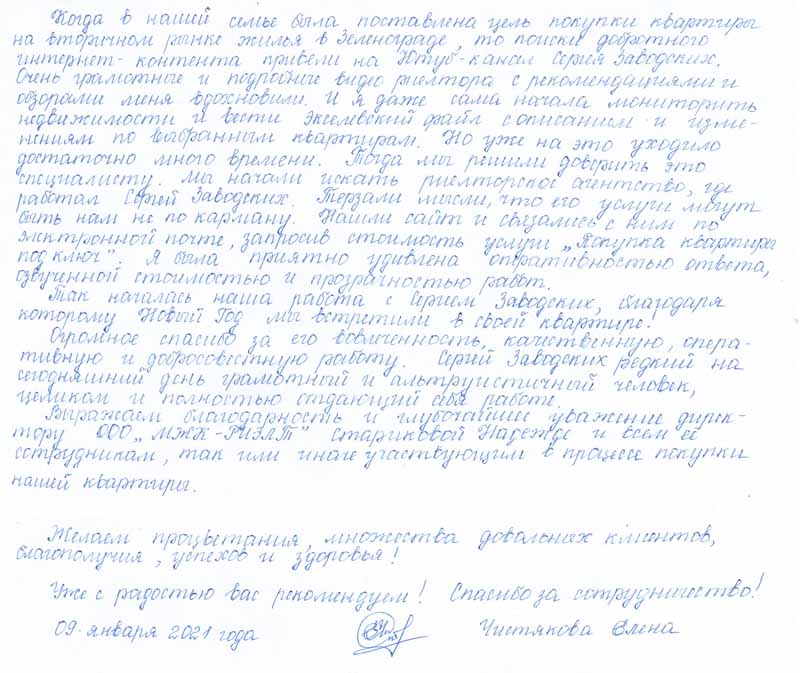 Когда в нашей семье была поставлена цель покупки квартиры
на вторичном рынке жилья в Зеленограде, то поиски добротного
интернет-контента привели на Ютуб-канал Сергея Заводских.
Очень грамотные и подробные видео риелтора с рекомендациями и
обзорами меня вдохновили. И я даже сама начала мониторить
недвижимости и вести экселевский файл с описанием и изме-
нениям по выбранным квартирам. Но уже на это уходило
достаточно много времени. Тогда мы решили доверить это
специалисту. Мы начали искать риелторское агентство, где
работал Сергей Заводских. Терзали мысли, что его услуги могут
быть нам не по карману. Нашли сайт и связались с ним по
электронной почте, запросив стоимость услуги „Покупка квартиры
под ключ". Я была приятно удивлена оперативностью ответа,
озвученной стоимостью и прозрачностью работ.
Так началась наша работа с Сергеем Заводских, благодаря
которому Новый Год мы встретили в своей квартире.
Огромное спасибо за его вовлеченность, качественную, опера-
тивную и добросовестную работу. Сергей Заводских редкий на
сегодняшний день грамотный и альтруистичный человек,
целиком и полностью отдающий себя работе.
Выражаем благодарность и глубочайшее уважение дирек-
тору ООО „МЖК-РИЭЛТ" Стариковой Надежде и всем её
сотрудникам, так или иначе участвующим в процессе покупки
нашей квартиры.
Желаем процветания, множества довольных клиентов,
благополучия, успехов и здоровья!
Уже с радостью вас рекомендуем! Спасибо за сотрудничество!
09 января 2021 года Чистякова Елена